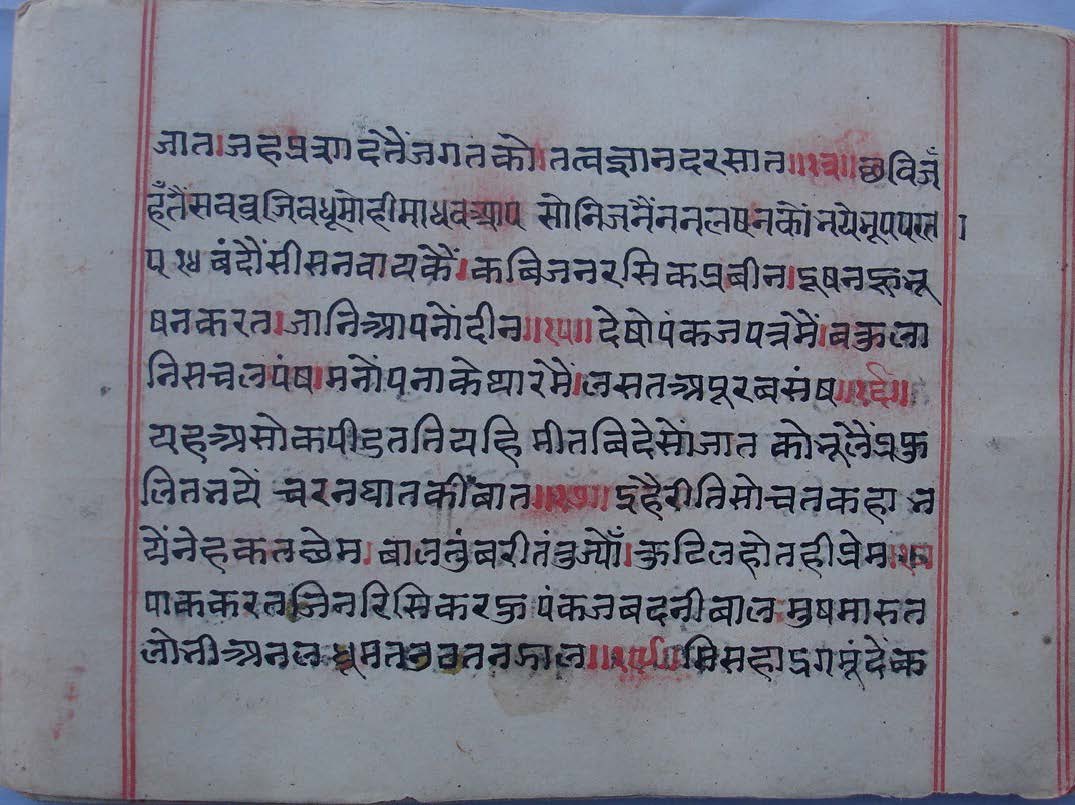 जात।जहप्रगदतेतैंजगतको।तत्वज्ञानदरसात॥१३॥छविजँ
हँतैंसबबृजिबधूमोहीमाधवआप सोनिजनैंननलषनकोंनयेभूपपरत।
प१४बंदौंसीसनवायकैं।कबिजनरसिकप्रबीन।दूषनहूभू
षनकरत।जानिआपनोंदीन॥१५॥देषोपंकजपत्रमैं।बकुला
निसचलपंष।मनोंपनाकेथारमैं।लसतअपूरबसंष॥१६॥
यहअसोकपीडततियहि मीतबिदेसोंजात कोभूलैंप्रफु
लितभयें चरनघातकीबात॥१७॥इहैरीतिसोचतकहा भ
येंनेहकतछेम।बालतुंबरीतंतुज्यौं।कुटिलहोतहीप्रेम१८
पाककरतजिनरिसिकरऊ पंकजबदनीबाल मुषमारुत
लोभीअनलधूमतजतनझाल॥१९॥मिसहाइगमूंदेंक